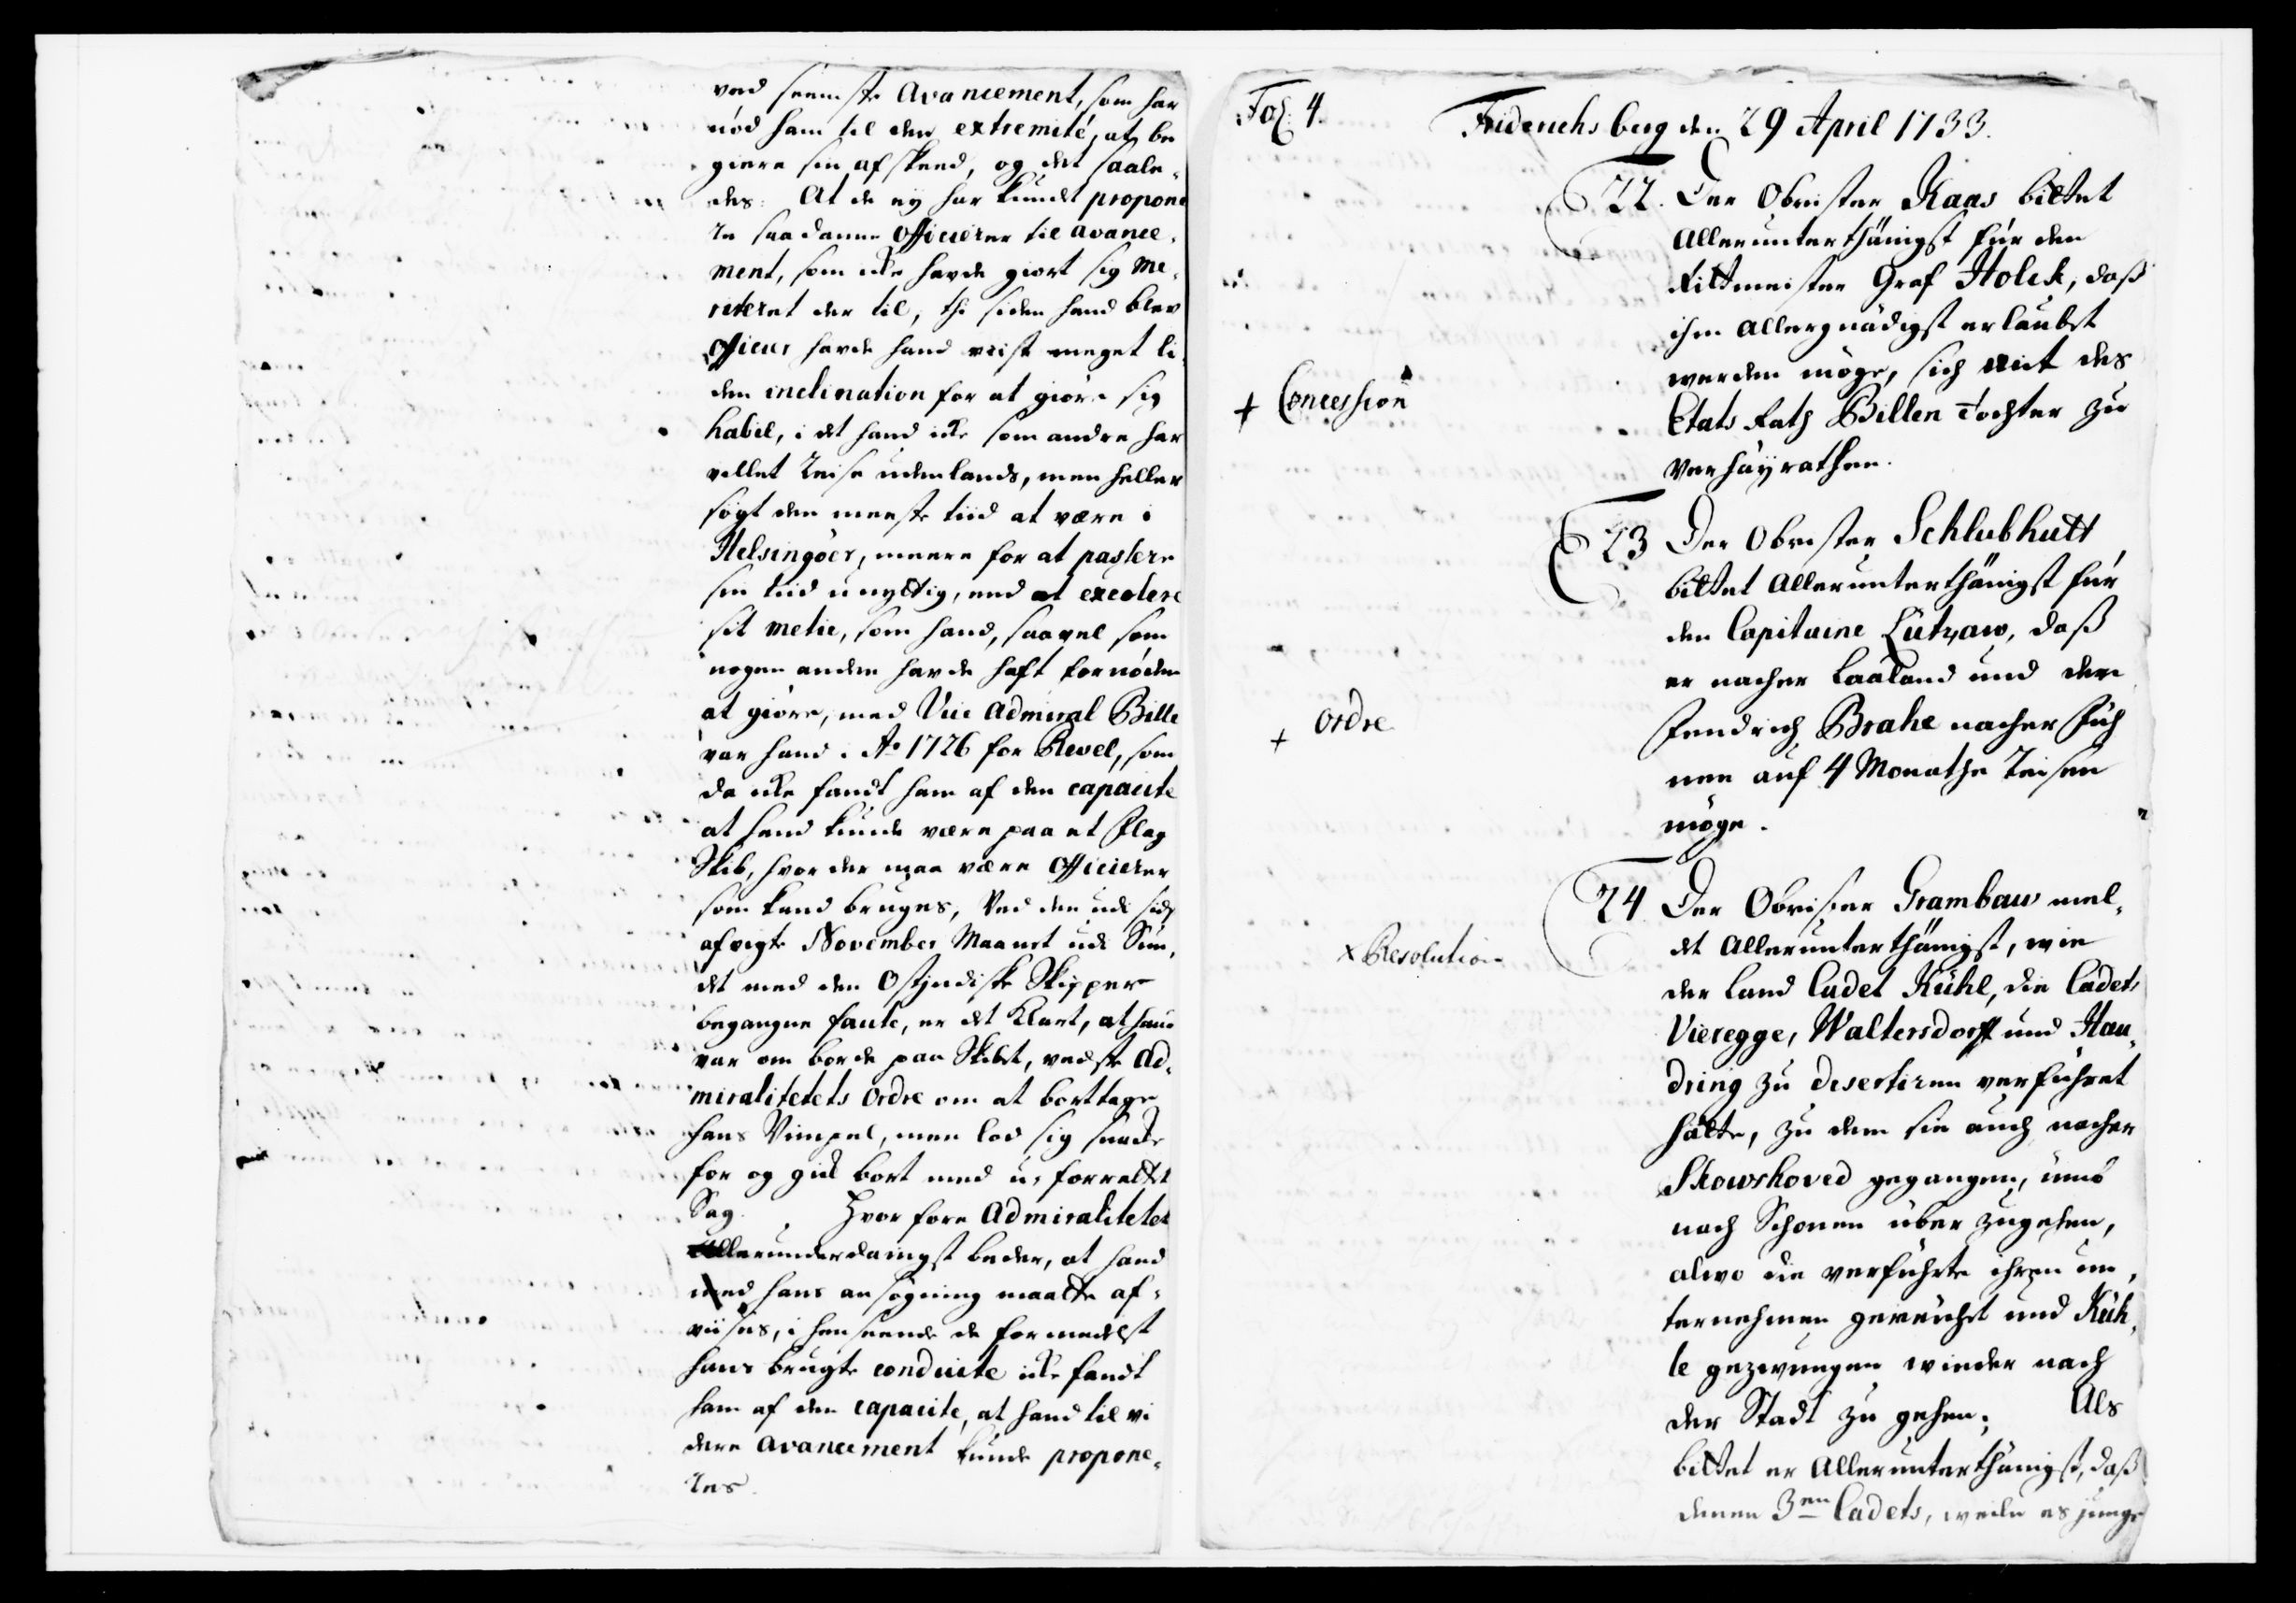 ved seenste Avancement, som har
nód ham til den extremité, at be
giere sin afskeed, og det saale,
des: At de ey har kundt propone
re saadanne Officierer til avance,
ment, som icke havde giort sig me,
riteret der til, thi siden hand blev
Officier havde hand viist meget li,
den inclination for at giöre sig
habil, i det hand icke som andre har
vellet reise udenlands, men heller
sögt den meeste tiid at være i
Helsingöer, meere for at passere
sin tiid unyttig, end at excolere
sit metie, som hand, saavel som
nogen anden havde haft fornöden
at giöre, med Vice Admiral Bille
var hand i Ao 1726 for Revel, som
da icke fandt ham af den capacite
at hand kunde være paa et Flag
Skib, hvor der maa være Officierer
som kand bruges, Ved den udi sidst
afvigte November Maanet udi Sun,
det med den Ostindiske Skipper
begangne faute, er det klart, at hand
var om borde paa Skibet, vedste Ad,
miralitetets Ordre om at borttage
hans Vimpel, men lod sig snacke
for og gick bort med u-forrettet
Sag. Hvor fore Admiralitetet
Allerunderdanigst beder, at hand
med hans ansögning maatte af,
viises, i henseende de formedelst
hans brugte conduite icke fandt
ham af den capacite, at hand til vi
dere avancement kunde propone,
res.
Fol: 4.
Friderichsberg den 29 April 1733.
22. Der Obrister Kaas bittet
Allerunterthänigst für den
Rittmeister Graf Holck, daß
ihm allergnädigst erlaubet
werden möge, sich mit des
+ Concession
Etats Rath Billen Tochter zu
verhäyrathen.
23 Der Obrister Schlubhutt
bittet allerunterthänigst für
den Capitaine Lützaw, daß
er nacher Laaland und der
+ Ordre
Fendrich Brahe nacher Füh
nen auf 4 Monathe reisen
möge.
24 Der Obrister Grambaw mel,
det allerunterthänigst, wie
x Resolution
der Land Cadet Kühl, die Cadets
Vieregge, Waltersdorff und Hau,
dring zu desertiren verführet
hätte, zu dem sie auch nacher
Skowshoved gegangen, umb
nach Schonen über zugehen,
alwo die verführte ihren un,
ternehmen gereuchet und Küh,
le gezwungen wieder nach
der Stadt zu gehen; Als
bittet er allerunterthänigst, daß
denen 3en Cadets, weile es junge